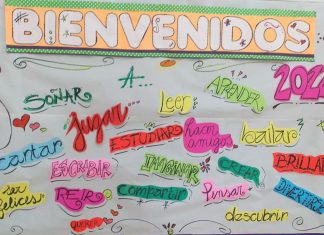 BIENVENIDOS
A...
2022
SOÑAR
LEER
APRENDER
jugar
ESTUDIAR
hacer amigos
bailar
cantar
ESCRIBIR
IMAGINAR
CREAR
BRILLAR
ser felices
REIR
Compartir
Pensar
DIVERTIRSE
QUERER
descubrir